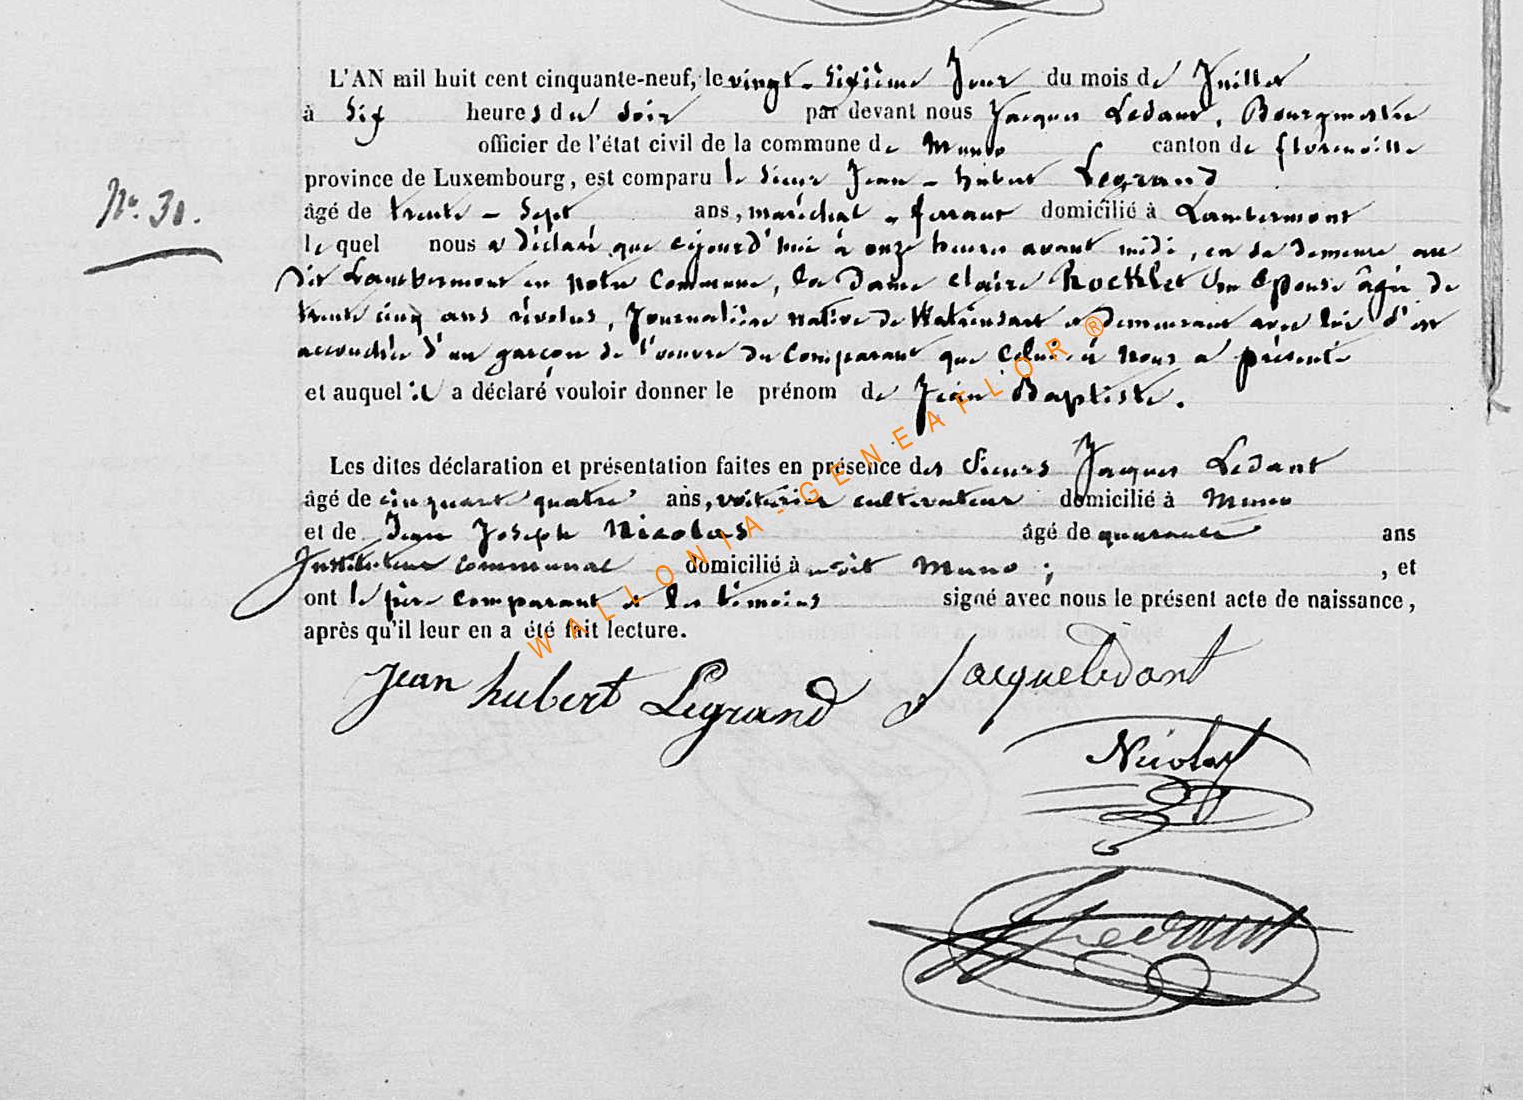 L'AN mil huit cent cinquante-neuf, le vingt-sixième Jour du mois de Juillet
à six heures du soir par devant nous Jacques Ledant, Bourgmestre
officier de l'état civil de la commune de Muno canton de florenville
N° 30.
province de Luxembourg, est comparu le sieur Jean-hubert Legrand
âgé de trente-sept ans, maréchal-ferrant domicilié à Lambermont
le quel nous a déclaré que cejourd'hui à onze heures avant midi, en sa demeure au
dit Lambermont en notre Commune, la Dame Claire Rocklet son Epouse âgée de
trente cinq ans révolus, Journalière native de et demeurant avec lui s'est
accouchée d'un garçon de l'oeuvre du Comparant que Celui-ci nous a présenté
et auquel il a déclaré vouloir donner le prénom de Jean Baptiste.
Les dites déclaration et présentation faites en présence des Sieurs Jacques Ledant
âgé de cinquant quatre ans, voiturier cultivateur domicilié à Muno
et de Jean Joseph Nicolas âgé de quarante ans
Instituteur communal domicilié à udit Muno ; , et
ont le père comparant et les témoins signé avec nous le présent acte de naissance,
après qu'il leur en a été fait lecture.
Jean hubert Legrand Jacque Ledant
Nicolas
Ledant
WALLONIA-GENEAFLOR®